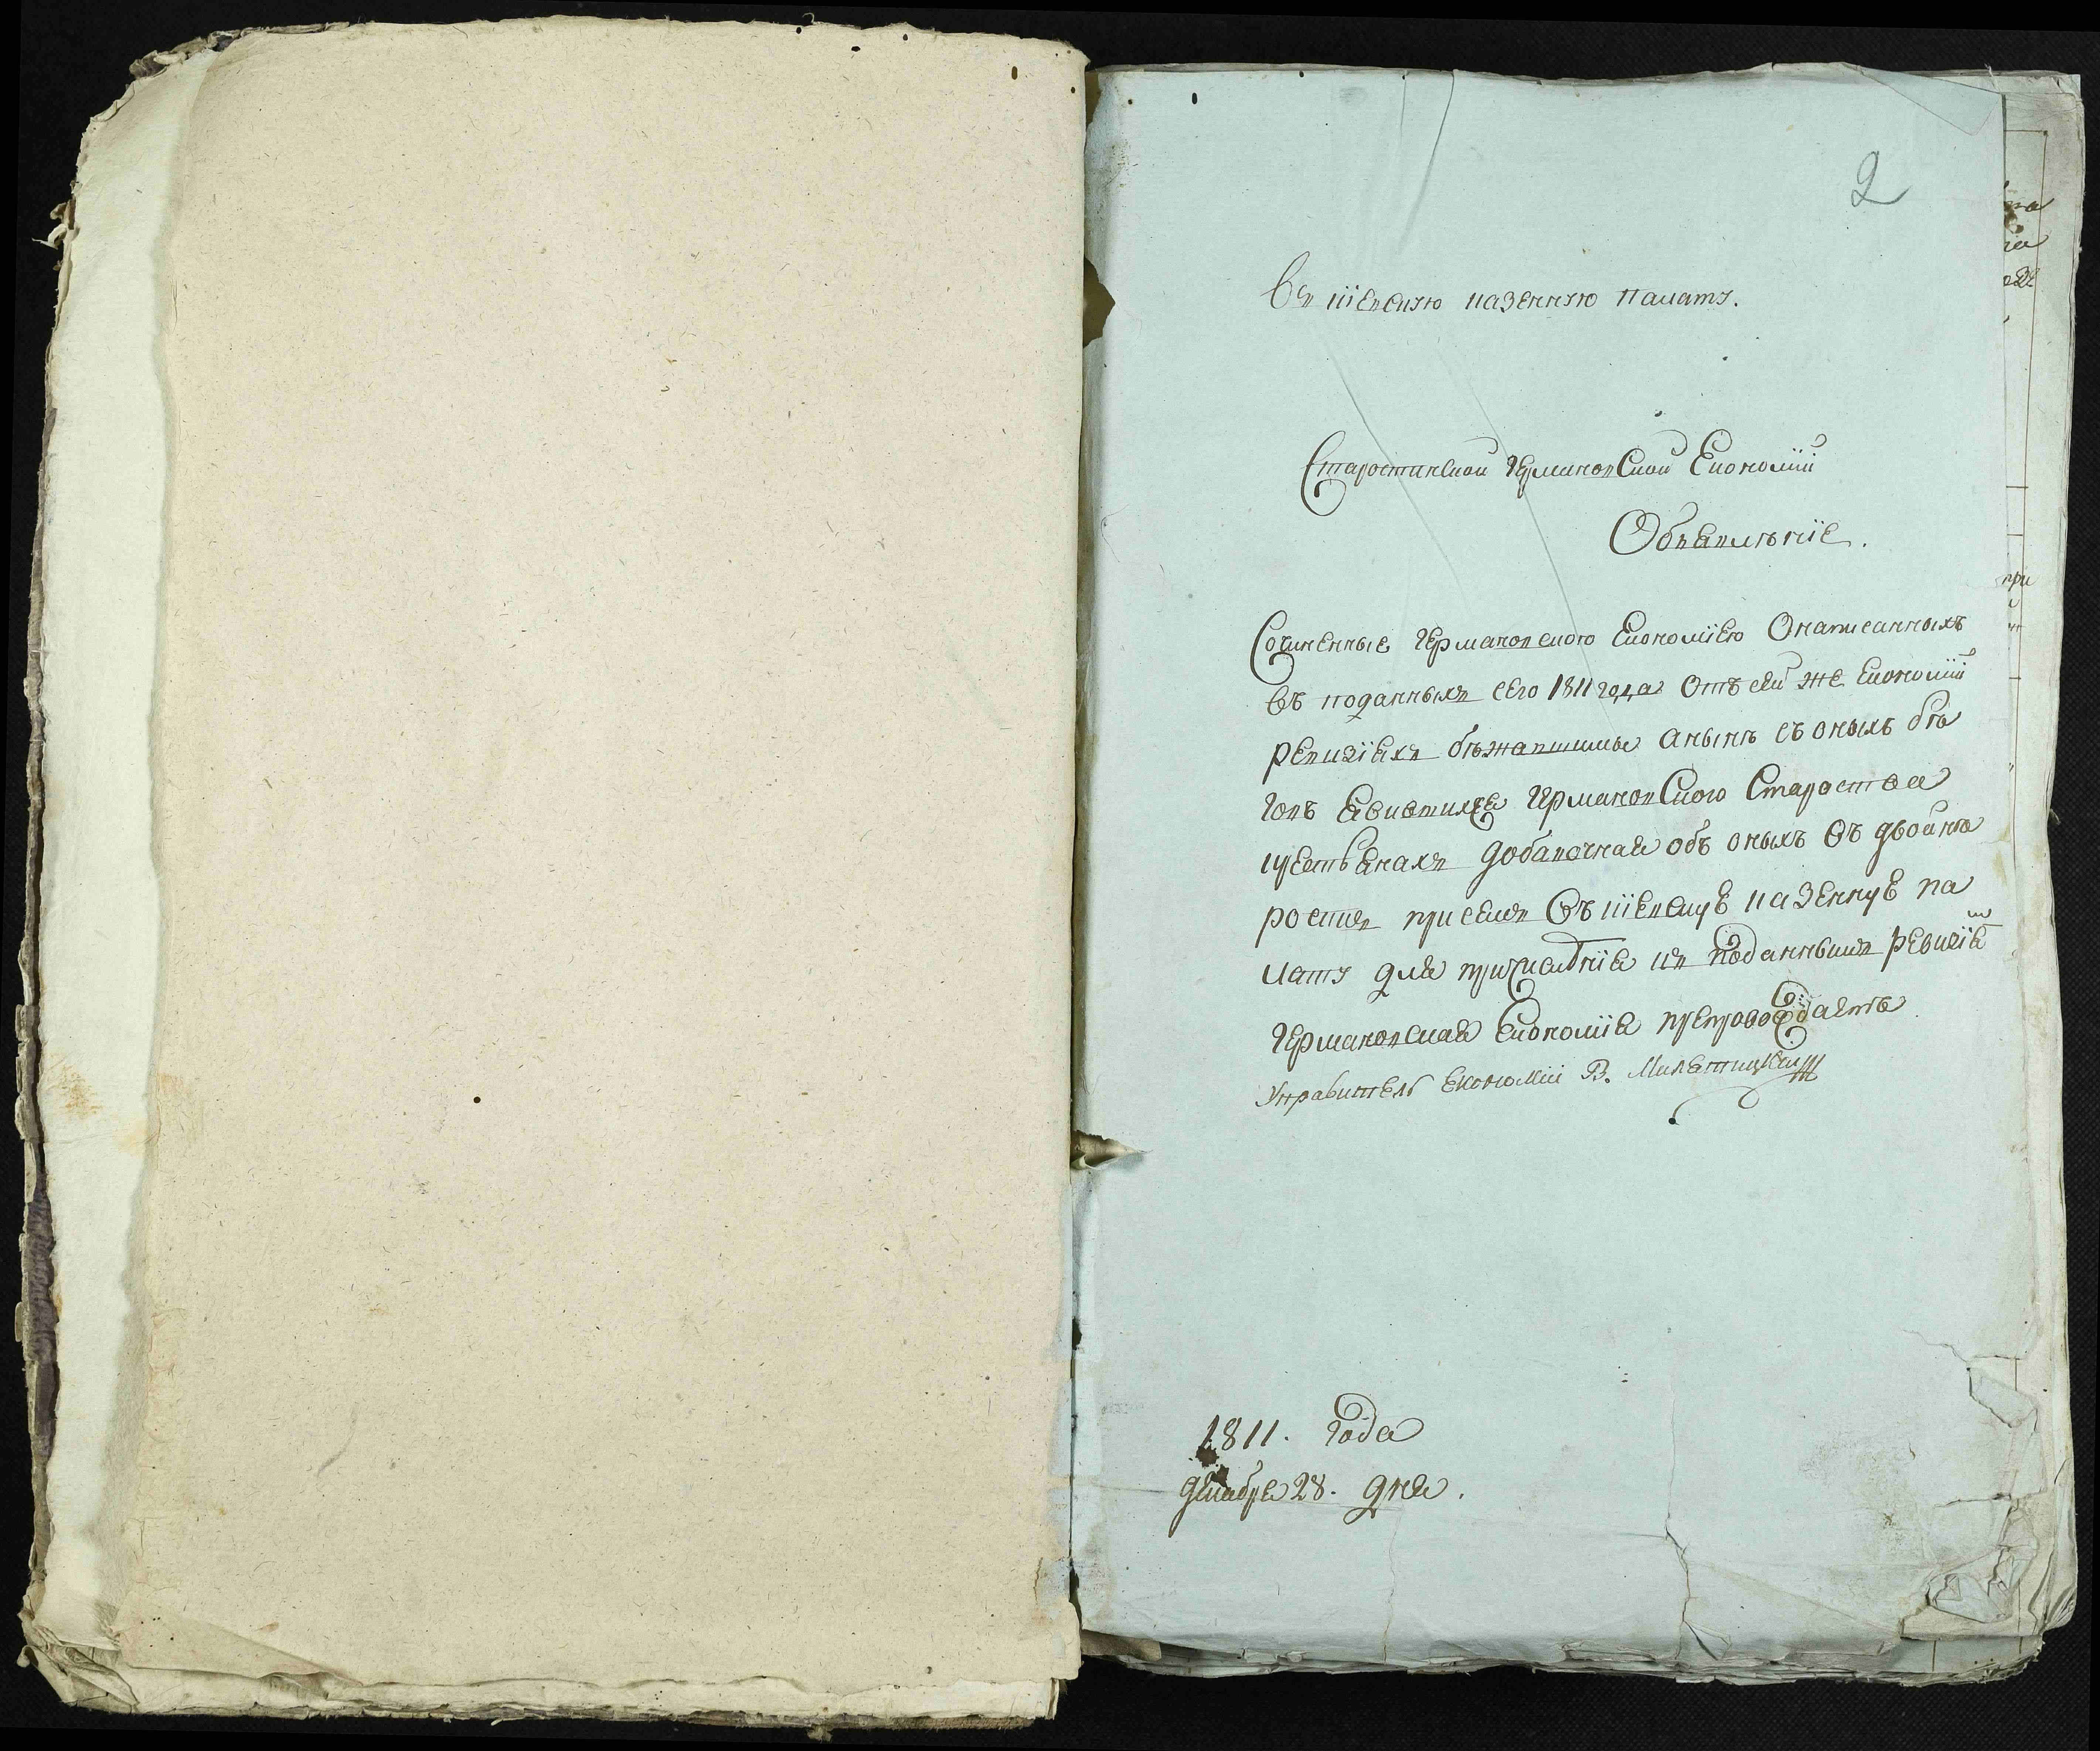 2
Въ Кіевскую Казенную Палату.
Старостинской Германовской Економіи
Обявленіе.
Сочиненные Германовскою Економіею о написанныхъ
въ поданныхъ сего 1811 года отъ сей же Економіи
ревизіяхъ бѣжавшими а нынѣ съ оныхъ бѣ
говъ явившихся Германовского Староства
крестьянахъ добавочная объ оныхъ въ двойнѣ
ростяхъ при семъ въ Кіевскуе Казеннуе Па
лату для причисленія къ поданнымъ ревизія
Германовская Економія препровождаетъ
Управитель Економіи В.
1811. Года
декабря 28. дня.